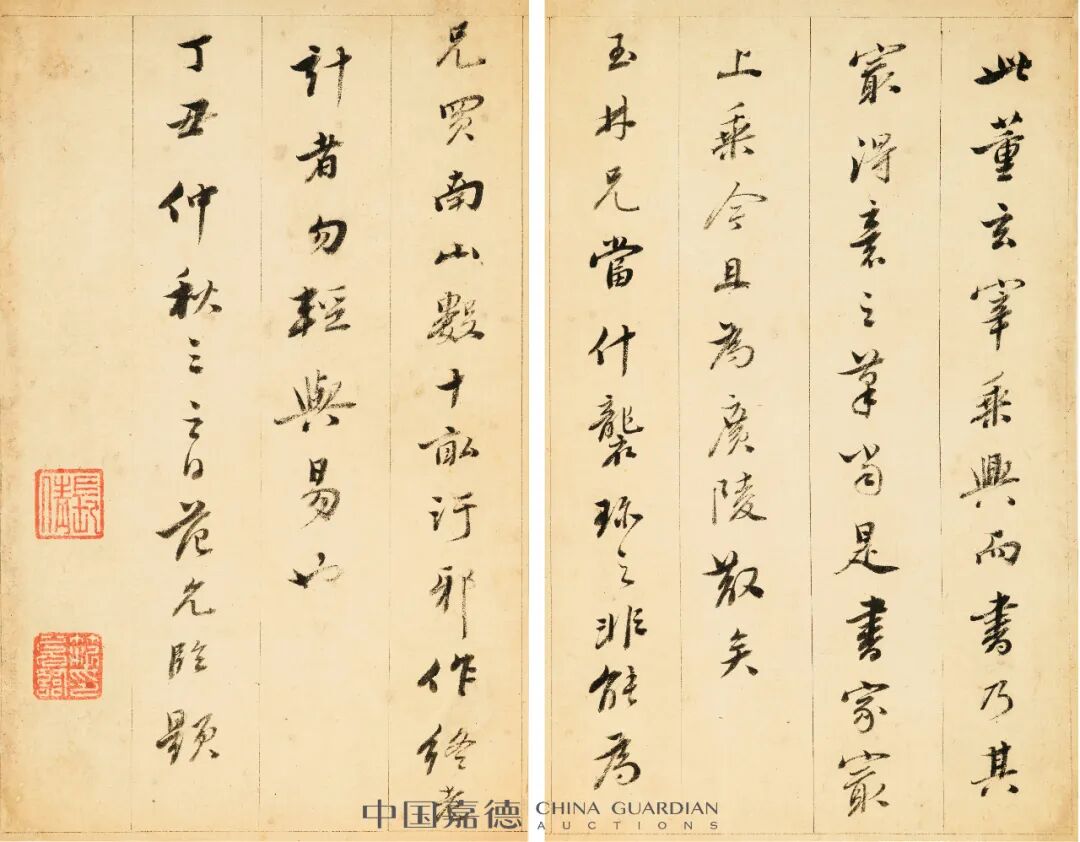 此董玄宰乘興而書乃其
㝡得意之筆當是書家㝡
上乘今且為廣陵散矣
玉林兄當什襲珎之非能為
兄買南山數十畝汙邪作終老
計者勿輕與易也
丁丑仲秋三之日范允臨題
長倩
中国嘉德 CHINA GUARDIAN
AUCTIONS